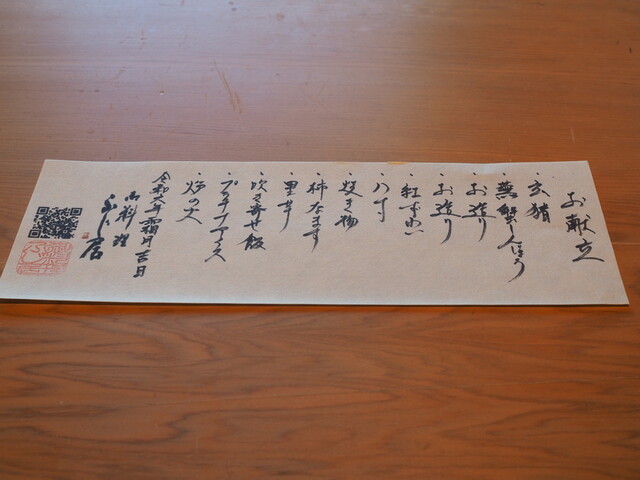 お献立
・亥猪
・蕪蟹しんじょう
・お造り
・お造り
・紅ずわい
・八寸
・焼き物
・柿なます
・里芋
・吹き寄せ飯
・プラチナアイス
・炉の火
令和六年霜月吉日
御料理
居